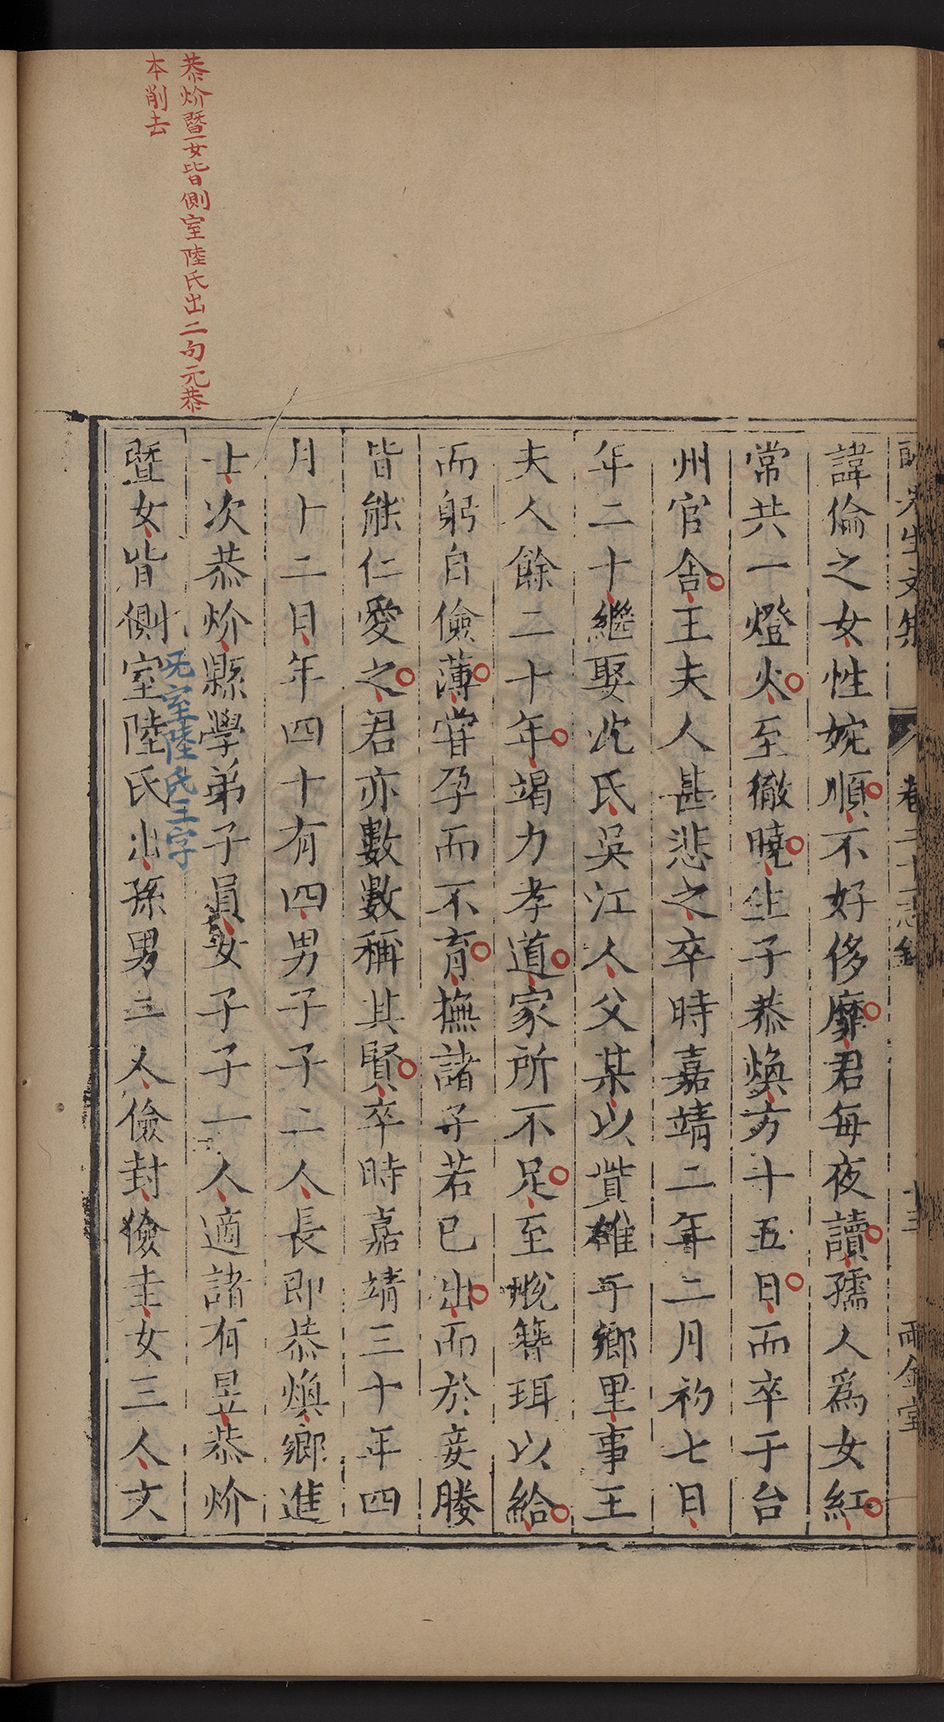 恭炌暨女皆側室陸氏出二句元恭
本削去
先生文集　卷二十志銘　十三　雨金堂
諱倫之女性婉順不好侈靡君每夜讀孺人為女紅
常共一燈火至徹曉生子恭煥方十五日而卒于台
州官舍王夫人甚悲之卒時嘉靖二年二月初七日
年二十繼娶沈氏吳江人父某以貲雄于鄉里事王
夫人餘二十年竭力孝道家所不足至脫簪珥以給
而躬自儉薄嘗孕而不育撫諸子若已出而於妾媵
皆能仁愛之君亦數數稱其賢卒時嘉靖三十年四
月十二日年四十有四男子子二人長即恭煥鄉進
士次恭炌縣學弟子員女子子一人適諸有昱恭炌
暨女皆側室陸氏出孫男三人儉封儉圭女三人文
无室陸氏三字